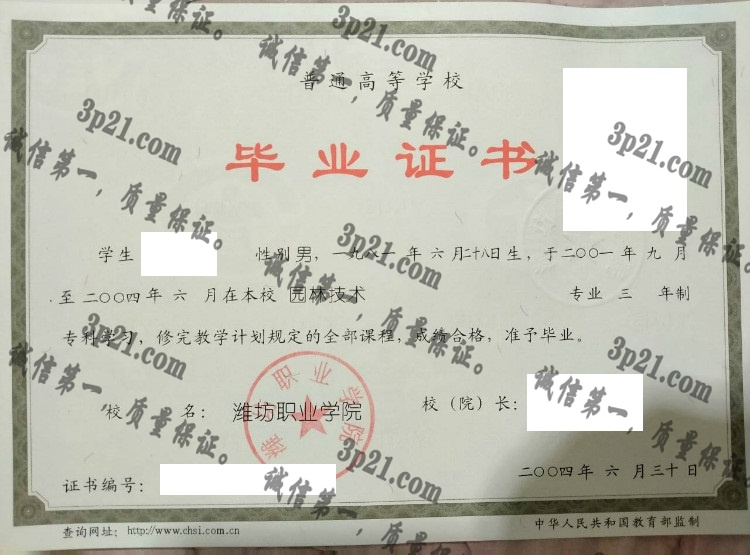 普通高等学校
毕业证书
学生 性别 男，一九八一年 六 月二十八日生，于二〇〇一年 九 月
至二〇〇四年 六 月在本校 园林技术 专业 三 年制
专科学习，修完教学计划规定的全部课程，成绩合格，准予毕业。
校 名： 潍坊职业学院 校（院）长：
潍坊职业学院
二〇〇四年 六 月三十日
证书编号：
查询网址：http://www.chsi.com.cn 中华人民共和国教育部监制
3p21.com
诚信第一，质量保证。
3p21.com
诚信第一，质量保证。
3p21.com
诚信第一，质量保证。
3p21.com
诚信第一，质量保证。
3p21.com
诚信第一，质量保证。
3p21.com
诚信第一，质量保证。
3p21.com
诚信第一，质量保证。
3p21.com
诚信第一，质量保证。